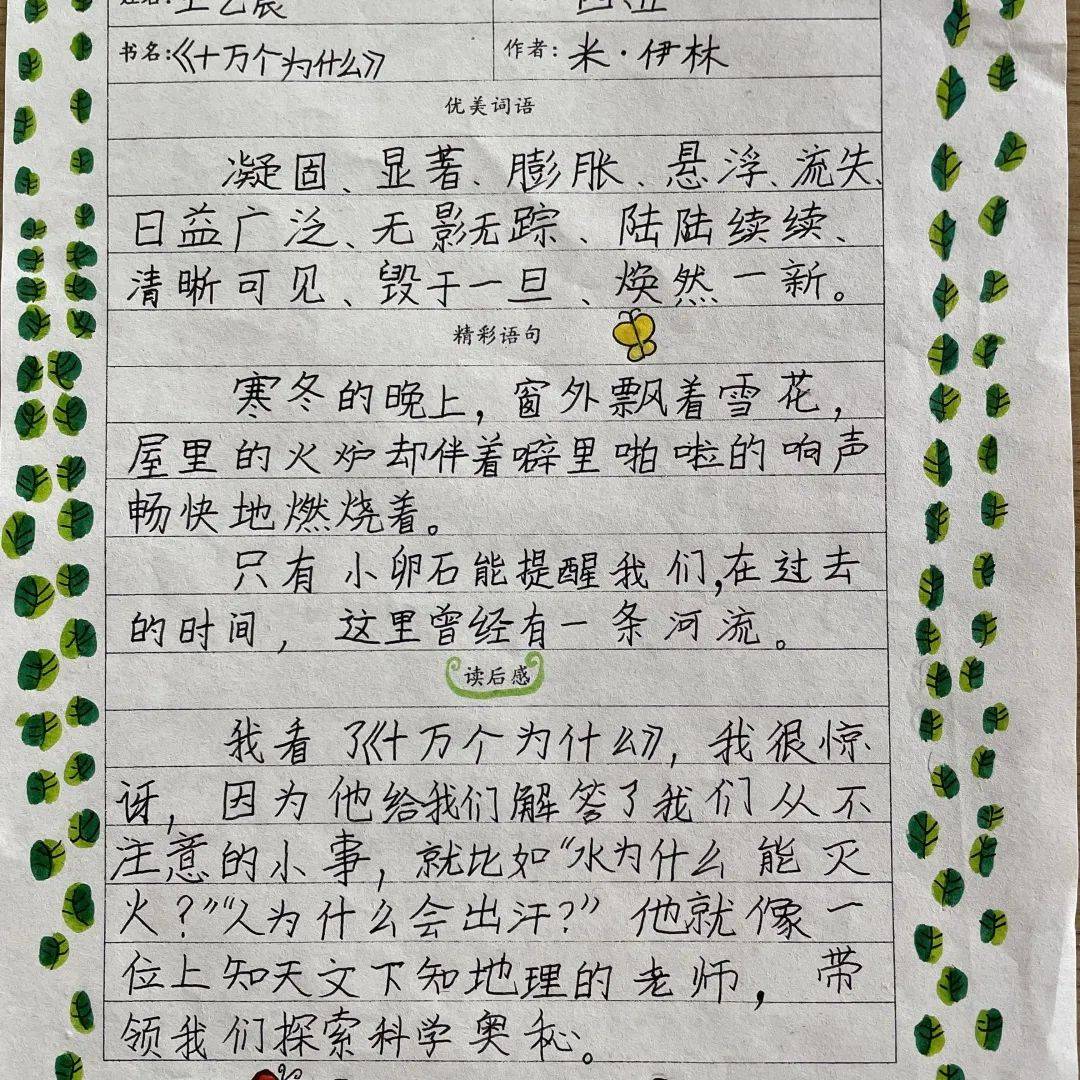 书名:《十万个为什么》 作者: 米·伊林
优美词语
凝固、显著、膨胀、悬浮、流失、
日益广泛、无影无踪、陆陆续续、
清晰可见、毁于一旦、焕然一新。
精彩语句
寒冬的晚上，窗外飘着雪花，
屋里的火炉却伴着噼里啪啦的响声
畅快地燃烧着。
只有小卵石能提醒我们,在过去
的时间，这里曾经有一条河流。
读后感
我看了《十万个为什么》，我很惊
讶，因为他给我们解答了我们从不
注意的小事，就比如“水为什么能灭
火？”“人为什么会出汗？”他就像一
位上知天文下知地理的老师，带
领我们探索科学奥秘。